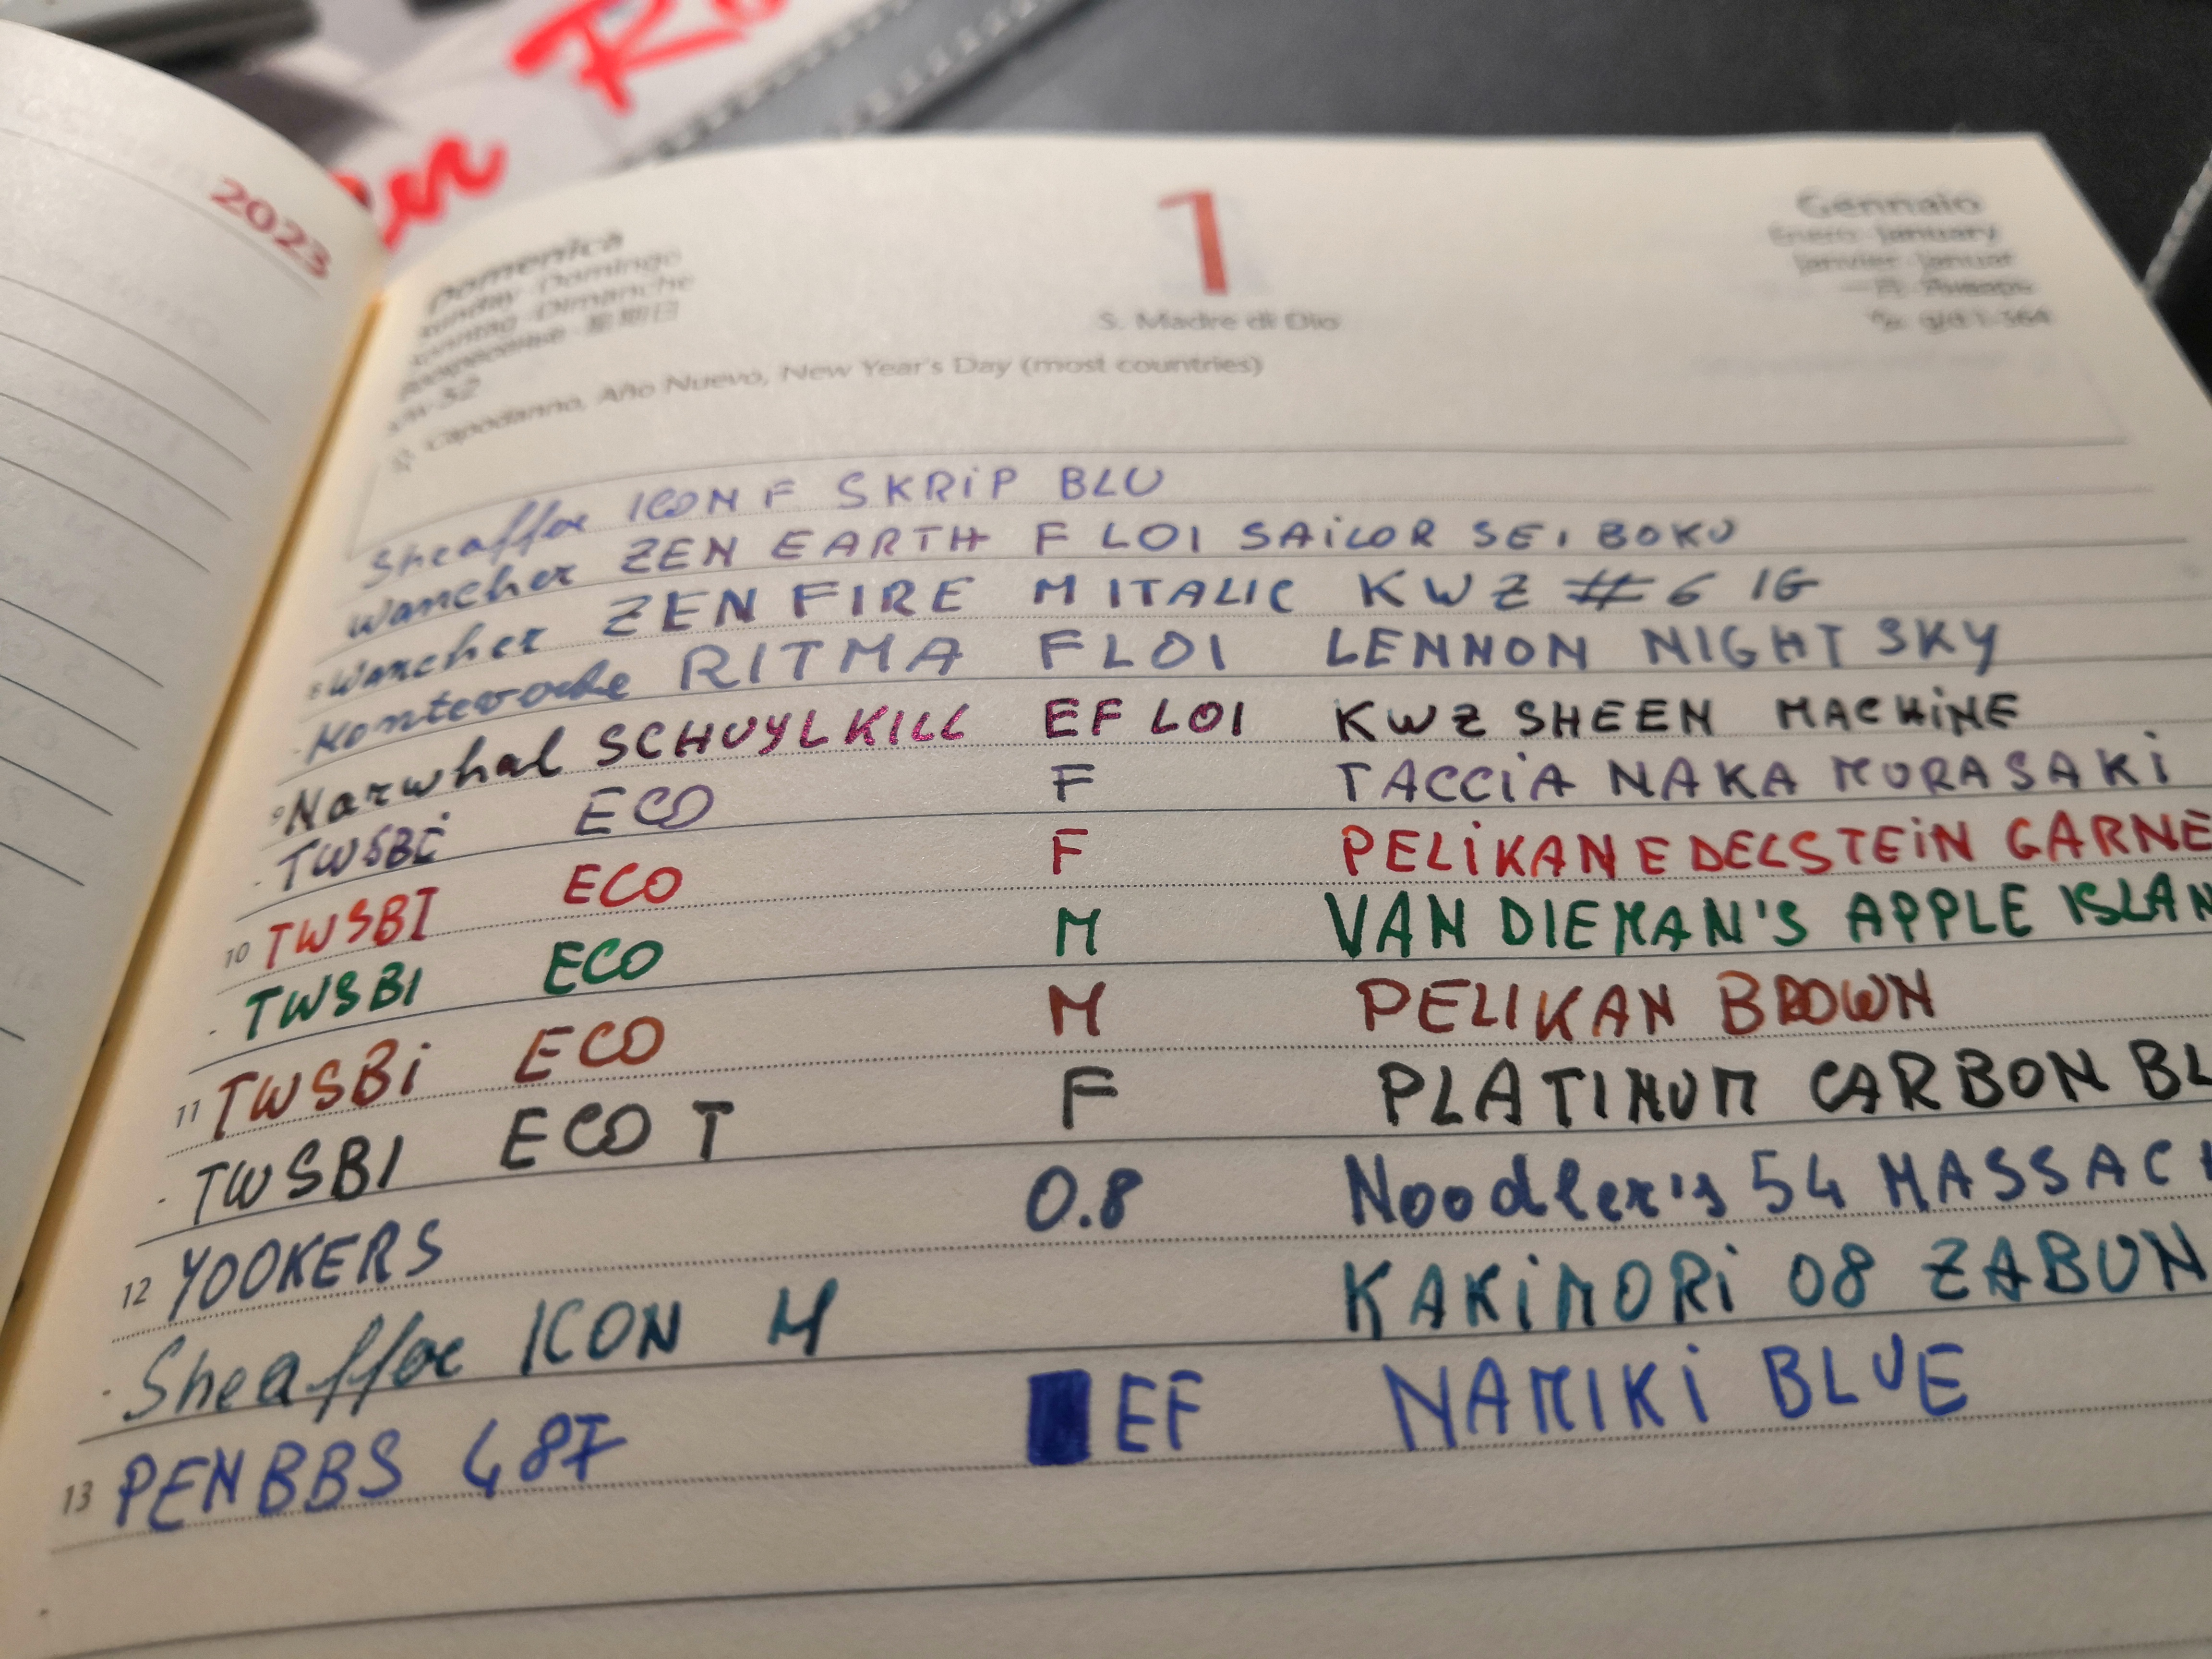 2023
1
Gennaio
Domenica
Enero · January
Sunday · Domingo
Janvier · Januar
Sonntag · Dimanche
星期日
S. Madre di Dio
52
g/d 1-364
Capodanno, Año Nuevo, New Year's Day (most countries)
Sheaffer ICON F SKRiP BLU
Wancher ZEN EARTH F LOI SAiLOR SEIBOKU
8 Wancher ZEN FIRE M ITALIC KWZ #6 IG
Monteverde RITMA F LOI LENNON NIGHT SKY
9 Narwhal SCHUYLKILL EF LOI KWZ SHEEN MACHiNE
TWSBi ECO F TACCiA NAKA MURASAKi
10 TWSBI ECO F PELiKAN EDELSTEiN GARNE
TWSBI ECO M VAN DIEMAN'S APPLE ISLAN
11 TWSBi ECO M PELIKAN BROWN
TWSBI ECO T F PLATINUM CARBON BL
12 YOOKERS 0.8 Noodler's 54 MASSACH
Sheaffer ICON M KAKiMORi 08 ZABUN
13 PENBBS 487 EF NAMIKi BLUE